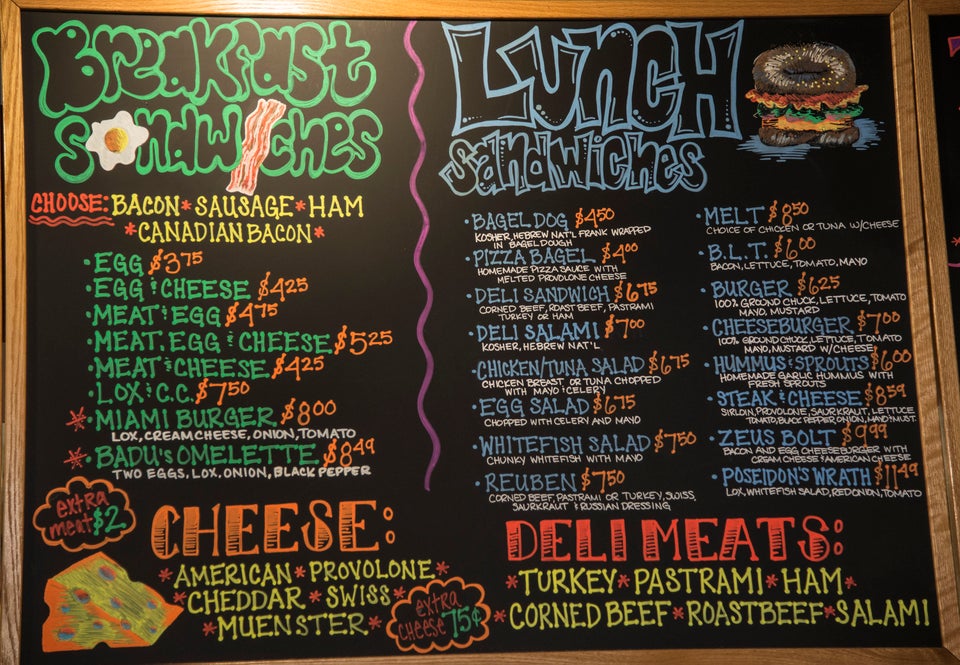 Breakfast
Sandwiches
CHOOSE: BACON * SAUSAGE * HAM
* CANADIAN BACON *
• EGG $3.75
• EGG & CHEESE $4.25
• MEAT & EGG $4.75
• MEAT, EGG & CHEESE $5.25
• MEAT & CHEESE $4.25
• LOX & C.C. $7.50
* • MIAMI BURGER $8.00
LOX, CREAM CHEESE, ONION, TOMATO
* • BADU'S OMELETTE $8.49
TWO EGGS, LOX, ONION, BLACK PEPPER
extra
meat $2
CHEESE:
* AMERICAN * PROVOLONE *
* CHEDDAR * SWISS *
* MUENSTER *
extra
cheese 75¢
LUNCH
Sandwiches
• BAGEL DOG $4.50
KOSHER, HEBREW NAT'L FRANK WRAPPED
IN BAGEL DOUGH
• PIZZA BAGEL $4.00
HOMEMADE PIZZA SAUCE WITH
MELTED PROVOLONE CHEESE
• DELI SANDWICH $6.75
CORNED BEEF, ROAST BEEF, PASTRAMI
TURKEY OR HAM
• DELI SALAMI $7.00
KOSHER, HEBREW NAT'L
• CHICKEN/TUNA SALAD $6.75
CHICKEN BREAST OR TUNA CHOPPED
WITH MAYO & CELERY
• EGG SALAD $6.75
CHOPPED WITH CELERY AND MAYO
• WHITEFISH SALAD $7.50
CHUNKY WHITEFISH WITH MAYO
• REUBEN $7.50
CORNED BEEF, PASTRAMI OR TURKEY, SWISS,
SAURKRAUT & RUSSIAN DRESSING
• MELT $8.50
CHOICE OF CHICKEN OR TUNA W/CHEESE
• B.L.T. $6.00
BACON, LETTUCE, TOMATO, MAYO
• BURGER $6.25
100% GROUND CHUCK, LETTUCE, TOMATO
MAYO, MUSTARD
• CHEESEBURGER $7.00
100% GROUND CHUCK, LETTUCE, TOMATO
MAYO, MUSTARD W/CHEESE
• HUMMUS & SPROUTS $6.00
HOMEMADE GARLIC HUMMUS WITH
FRESH SPROUTS
• STEAK & CHEESE $8.59
SIRLOIN, PROVOLONE, SAURKRAUT, LETTUCE
TOMATO, BLACK PEPPER, ONION, MAYO, MUST.
• ZEUS BOLT $9.99
BACON AND EGG CHEESEBURGER WITH
CREAM CHEESE & AMERICAN CHEESE
• POSEIDON'S WRATH $11.49
LOX, WHITEFISH SALAD, RED ONION, TOMATO
DELI MEATS:
* TURKEY * PASTRAMI * HAM *
* CORNED BEEF * ROAST BEEF * SALAMI